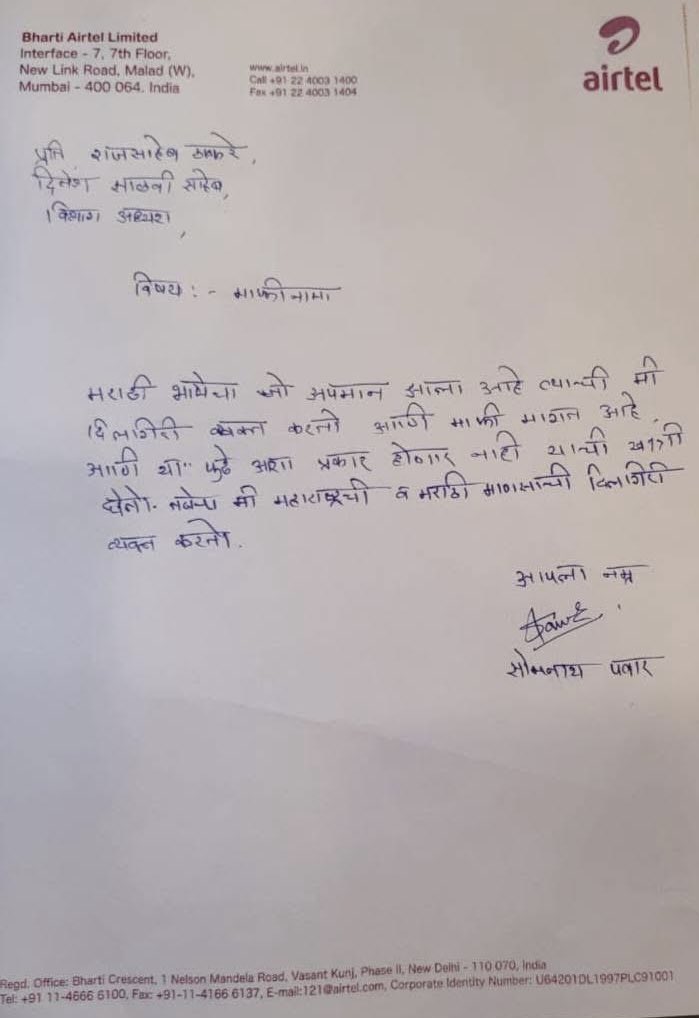 Bharti Airtel Limited
Interface - 7, 7th Floor,
New Link Road, Malad (W),
Mumbai - 400 064. India
www.airtel.in
Call +91 22 4003 1400
Fax +91 22 4003 1404
airtel
प्रति राजसाहेब ठाकरे,
दिनेश साळवी साहेब,
विभाग अध्यक्ष,
विषय : - माफीनामा
मराठी भाषेचा जो अपमान झाला आहे त्याची मी
दिलगिरी व्यक्त करतो आणि माफी मागत आहे.
आणि या पुढे अशा प्रकार होणार नाही याची खात्री
देतो. तसेच मी महाराष्ट्रची व मराठी माणसाची दिलगिरी
व्यक्त करतो.
आपला नम्र
सोमनाथ पवार
Regd. Office: Bharti Crescent, 1 Nelson Mandela Road, Vasant Kunj, Phase II, New Delhi - 110 070, India
Tel: +91 11-4666 6100, Fax: +91-11-4166 6137, E-mail:121@airtel.com, Corporate Identity Number: U64201DL1997PLC91001